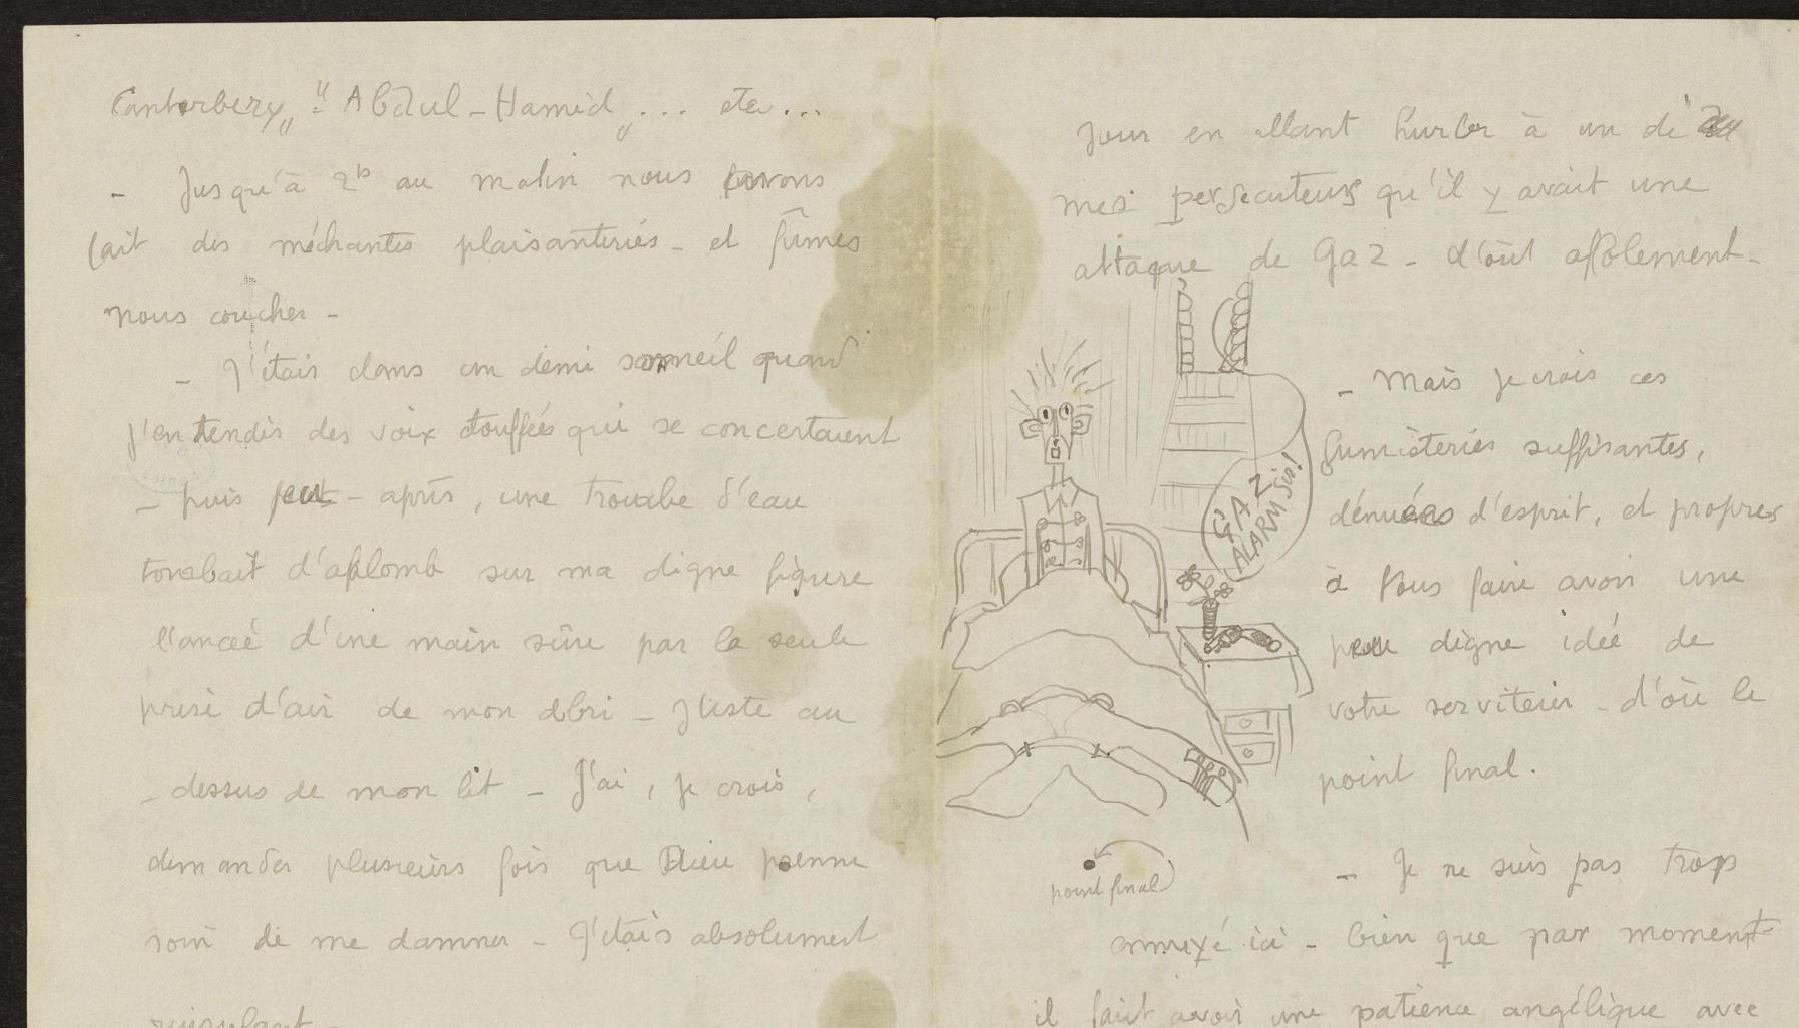 Canterbery„ " Abdul-Hamid„... etc...
- Jusqu'à 2h au matin nous avons
fait des méchantes plaisanteries - et fûmes
nous coucher -
- J'étais dans un demi sommeil quand
j'entendis des voix étouffées qui se concertaient
- puis peu - après, une trombe d'eau
tombait d'aplomb sur ma digne figure
lancée d'une main sûre par la seule
prise d'air de mon abri - Juste au
- dessus de mon lit - J'ai, je crois,
demander plusieurs fois que Dieu prenne
soin de me damner - J'étais absolument
ruisselant -
Jour en allant hurler à un de
mes persecuteurs qu'il y avait une
attaque de Gaz - d'où affolement -
GAZ
ALARM Sir!
- Mais je crois ces
fumisteries suffisantes,
dénuées d'esprit, et propres
à Vous faire avoir une
peu digne idée de
votre serviteur - d'où le
point final.
point final
- Je ne suis pas trop
ennuyé ici - bien que par moment
il faut avoir une patience angélique avec